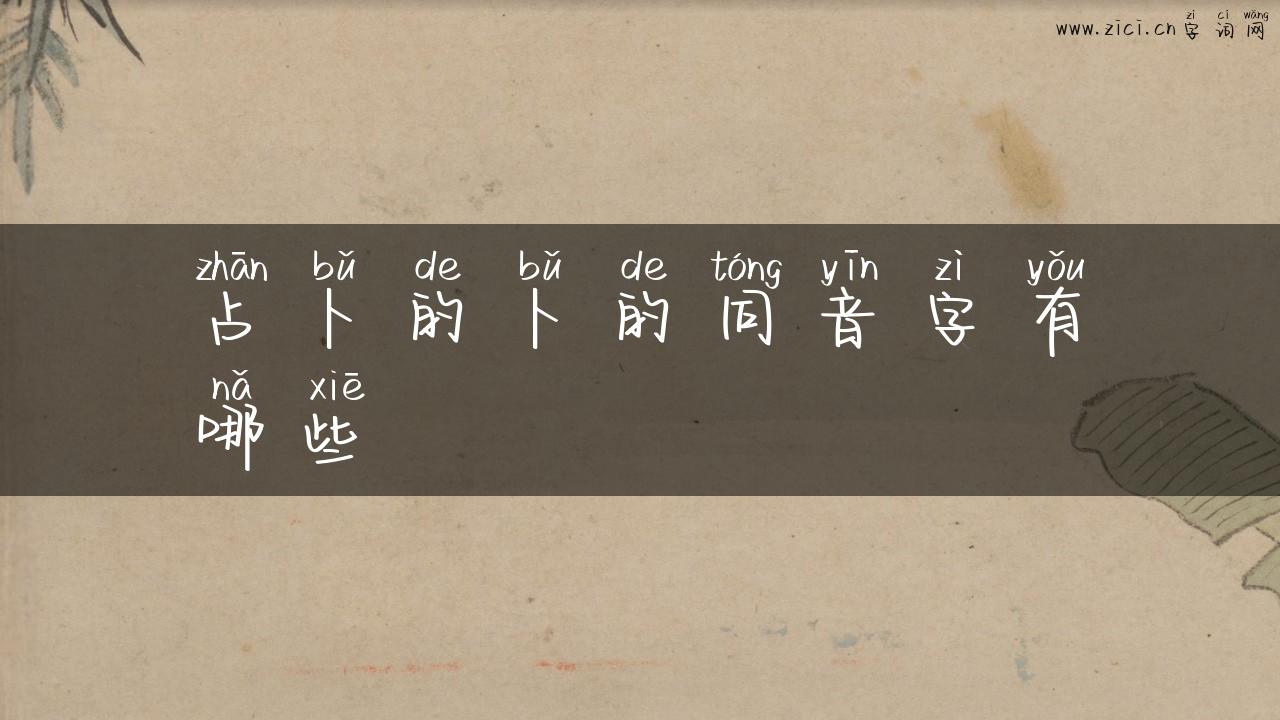 zì cí wǎng
www.zici.cn 字词网
zhān bǔ de bǔ de tóng yīn zì yǒu
占卜的卜的同音字有
nǎ xiē
哪些